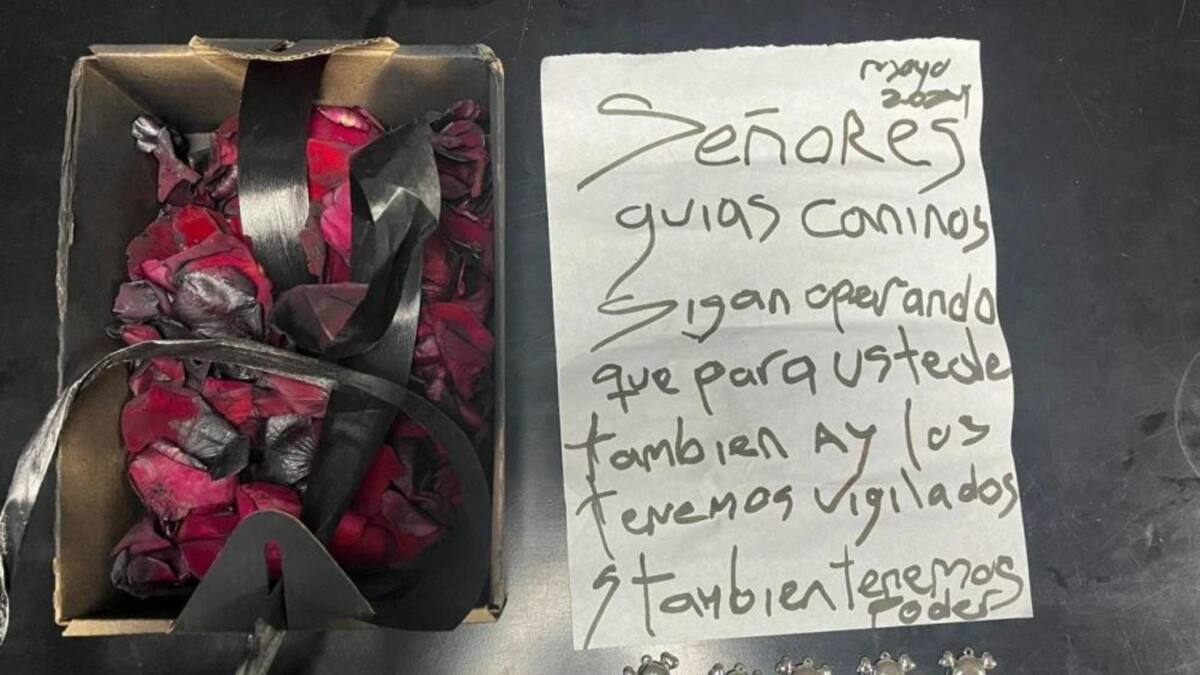 mayo
2024
SEÑORES
guias caminos
Sigan operando
que para ustede
tambien AY los
tenemos vigilados
y tambien tenemos
Poder